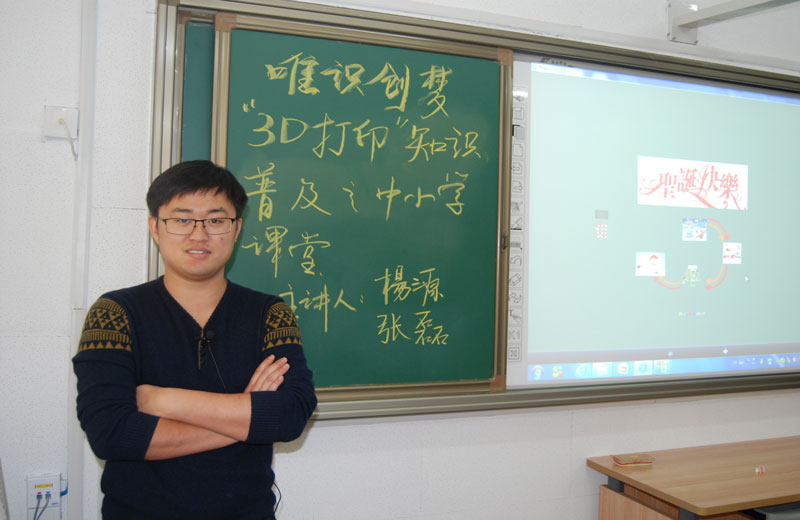 唯识创梦
"3D打印"知识
普及之中小学
课堂
主讲人：楊源
张磊
聖誕快樂